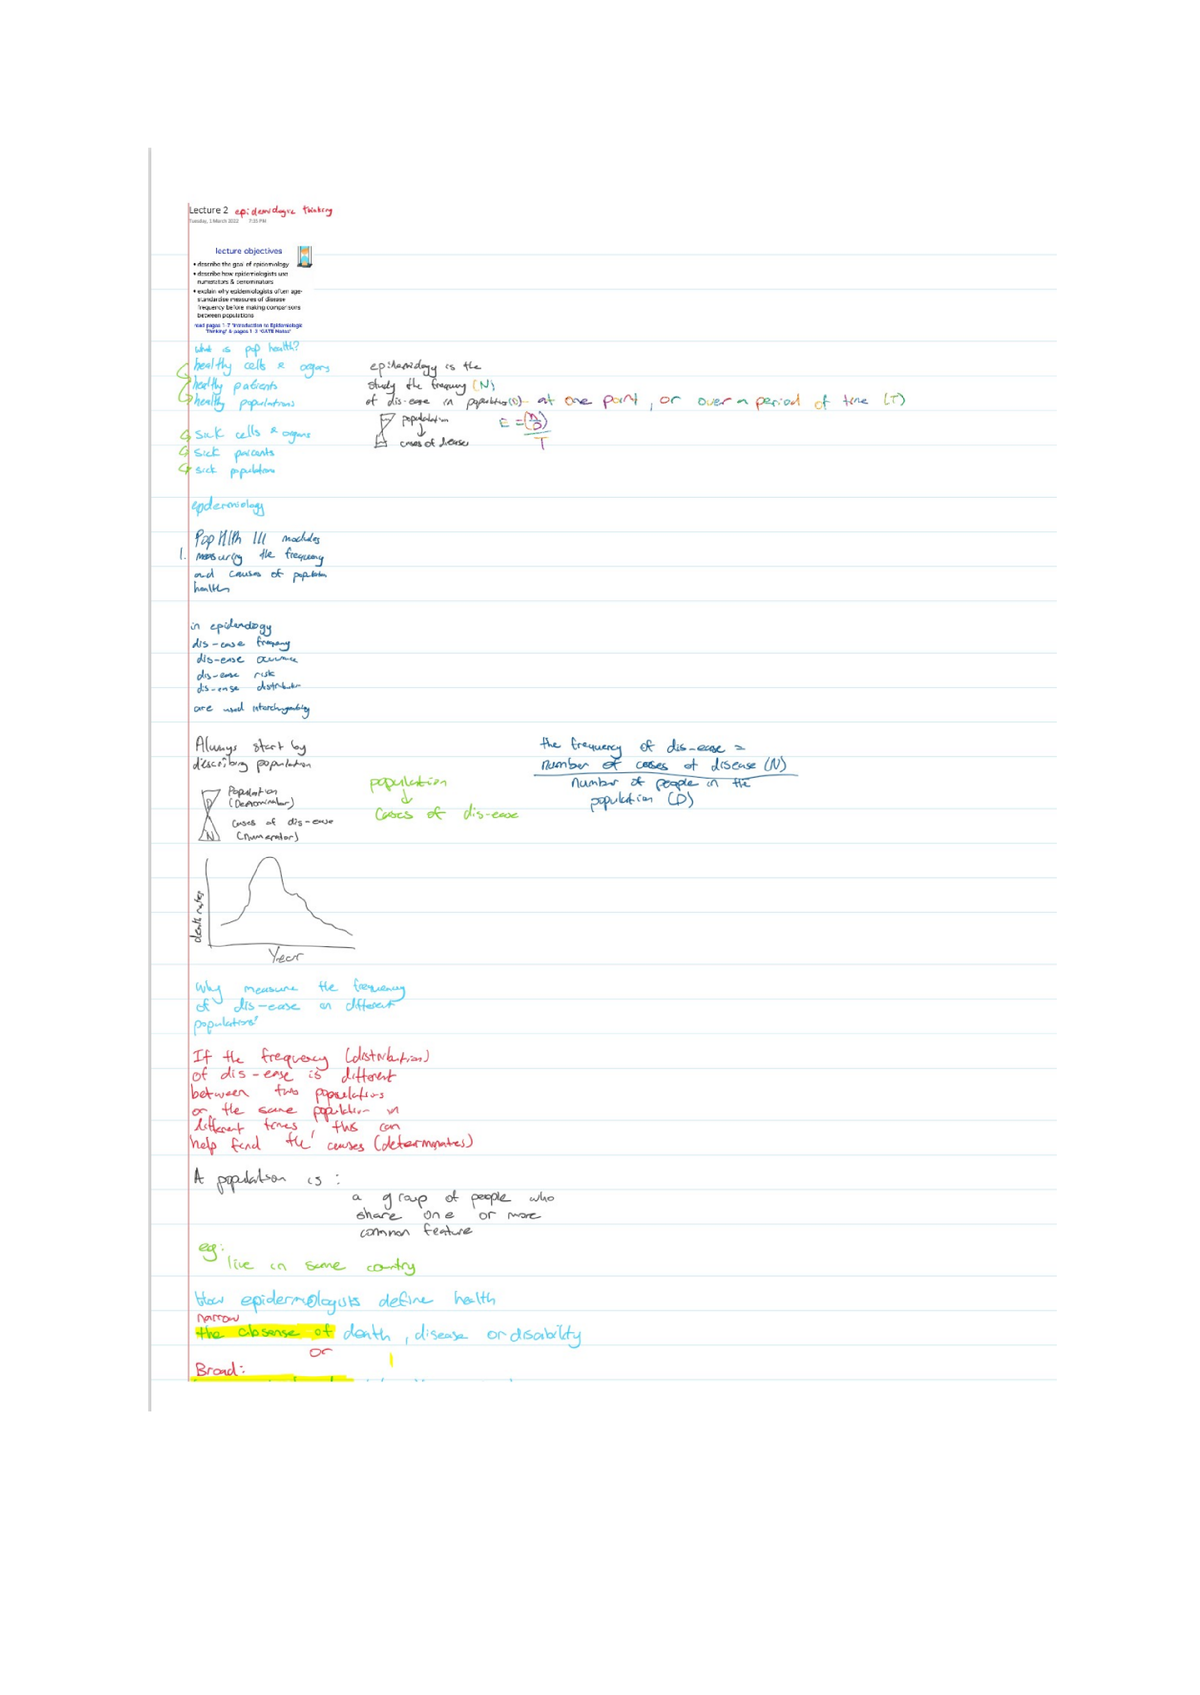 Lecture 2 epidemiologic thinking
Tuesday, 1 March 2022 7:35 PM
lecture objectives
• describe the goal of epidemiology
• describe how epidemiologists use
numerators & denominators
• explain why epidemiologists often age-
standardise measures of disease
frequency before making comparisons
between populations
read pages 1-7 'Introduction to Epidemiologic
Thinking' & pages 1-3 'GATE Notes'
what is pop health?
healthy cells & organs
healthy patients
healthy populations
sick cells & organs
sick patients
sick populations
epidemiology is the
study the frequency (N)
of dis-ease in populations(D) at one point, or over a period of time (T)
population
↓
cases of disease
E = (N/D)
T
epidermiology
Pop Hlth 111 modules
1. measuring the frequency
and causes of population
health
in epidemiology
dis-ease frequency
dis-ease occurence
dis-ease risk
dis-ease distribution
are used interchangeably
Always start by
describing population
Population
(Denominator)
cases of dis-ease
(numerator)
D
N
population
↓
cases of dis-ease
the frequency of dis-ease =
number of cases of disease (N)
number of people in the
population (D)
death rates
Year
Why measure the frequency
of dis-ease in different
populations?
If the frequency (distribution)
of dis-ease is different
between two populations
or the same population in
different times, this can
help find the causes (determinates)
A population is:
a group of people who
share one or more
common feature
eg:
live in same country
How epidermologists define health
narrow
the absense of death, disease or disability
or
Broad: